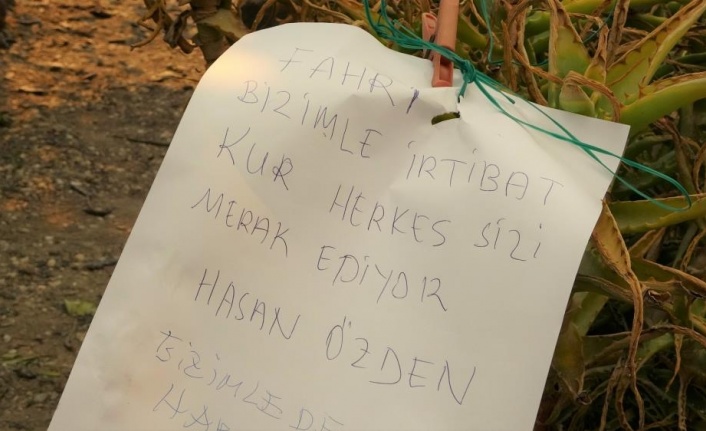 FAHRİ
BİZİMLE İRTİBAT
KUR HERKES SİZİ
MERAK EDİYOR
HASAN ÖZDEN
BİZİMLEDE